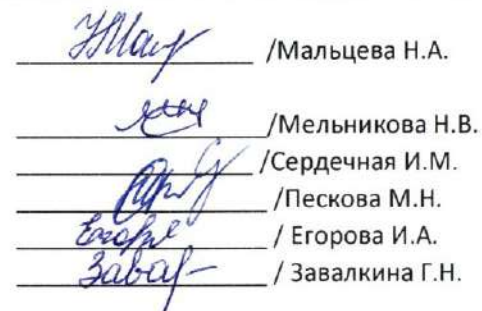 /Мальцева Н.А.
/Мельникова Н.В.
/Сердечная И.М.
/Пескова М.Н.
/ Егорова И.А.
/ Завалкина Г.Н.